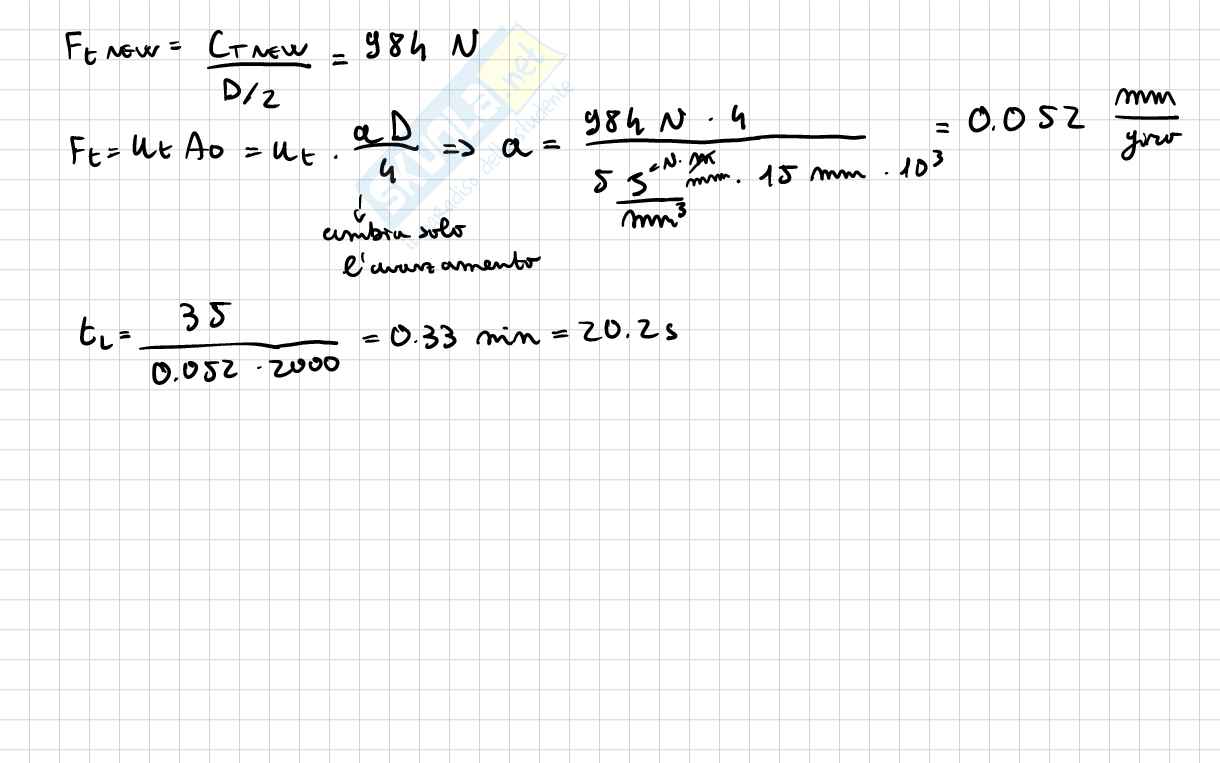 Ft NEW = CT NEW / D/2 = 984 N
Ft = ut A0 = ut · aD / 4 => a = 984 N · 4 / 5 J = N·m / mm³ · 15 mm · 10³ = 0.052 mm / giro
cambia solo
l'avanzamento
tL = 35 / 0.052 · 2000 = 0.33 min = 20.2 s
SKUOLA.net